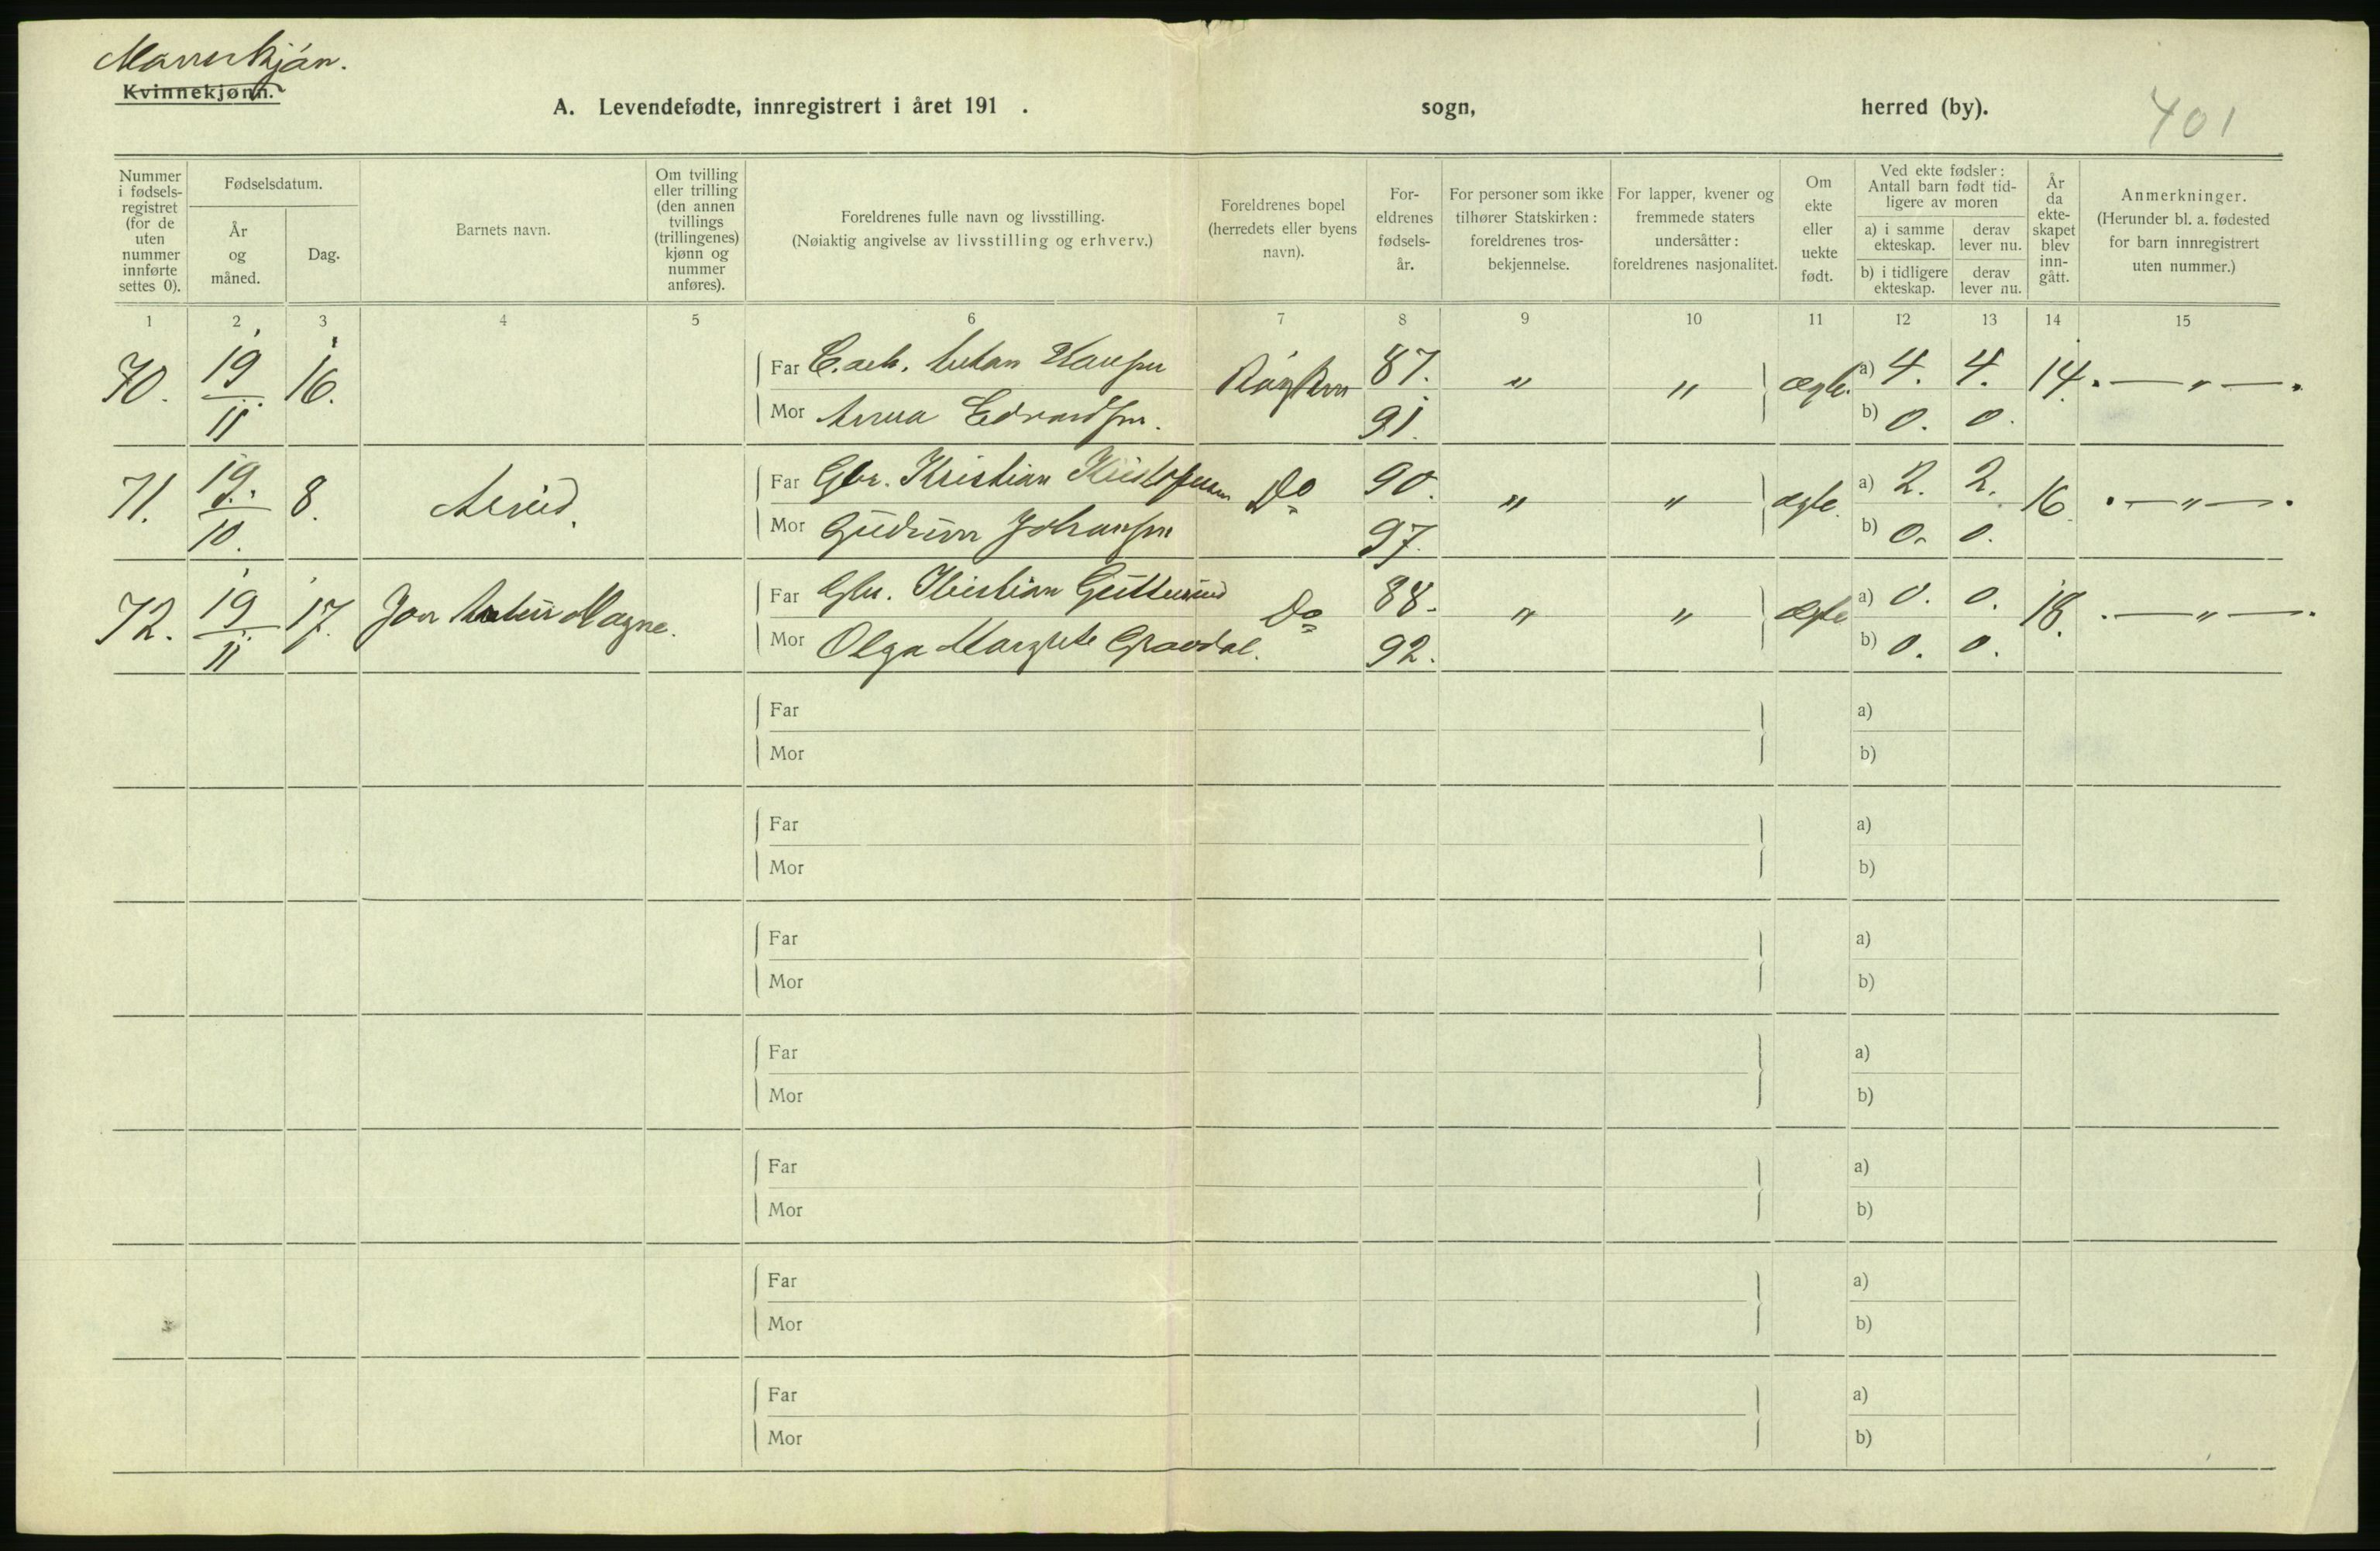 Mannkjøn.
Kvinnekjønn.
A. Levendefødte, innregistrert i året 191 . sogn, herred (by). 401
Nummer i fødsels-registret (for de uten nummer innførte settes 0).
Fødselsdatum.
År og måned.
Dag.
Barnets navn.
Om tvilling eller trilling (den annen tvillings (trillingenes) kjønn og nummer anføres).
Foreldrenes fulle navn og livsstilling.
(Nøiaktig angivelse av livsstilling og erhverv.)
Foreldrenes bopel (herredets eller byens navn).
For-eldrenes fødsels-år.
For personer som ikke tilhører Statskirken: foreldrenes tros-bekjennelse.
For lapper, kvener og fremmede staters undersåtter: foreldrenes nasjonalitet.
Om ekte eller uekte født.
Ved ekte fødsler: Antall barn født tid-ligere av moren
a) i samme ekteskap. derav lever nu.
b) i tidligere ekteskap. derav lever nu.
År da ekte-skapet blev inn-gått.
Anmerkninger.
(Herunder bl. a. fødested for barn innregistrert uten nummer.)
1 2 3 4 5 6 7 8 9 10 11 12 13 14 15
70. 19/11 16. Far 87. " " ægte. a) 4. 4. 14. — " —
Mor Anna Edvardsen. 91. b) 0. 0.
71. 19/10. 8. Arvid. Far Gbr. Kristian Do 90. " " ægte. a) 2. 2. 16. — " —
Mor Gudrun Johansen 97. b) 0. 0.
72. 19/11 17. Jon Magne. Far Kristian Do 88. " " ægte a) 0. 0. 18. — " —
Mor Olga Margrete Gravdal. 92. b) 0. 0.
Far a)
Mor b)
Far a)
Mor b)
Far a)
Mor b)
Far a)
Mor b)
Far a)
Mor b)
Far a)
Mor b)
Far a)
Mor b)